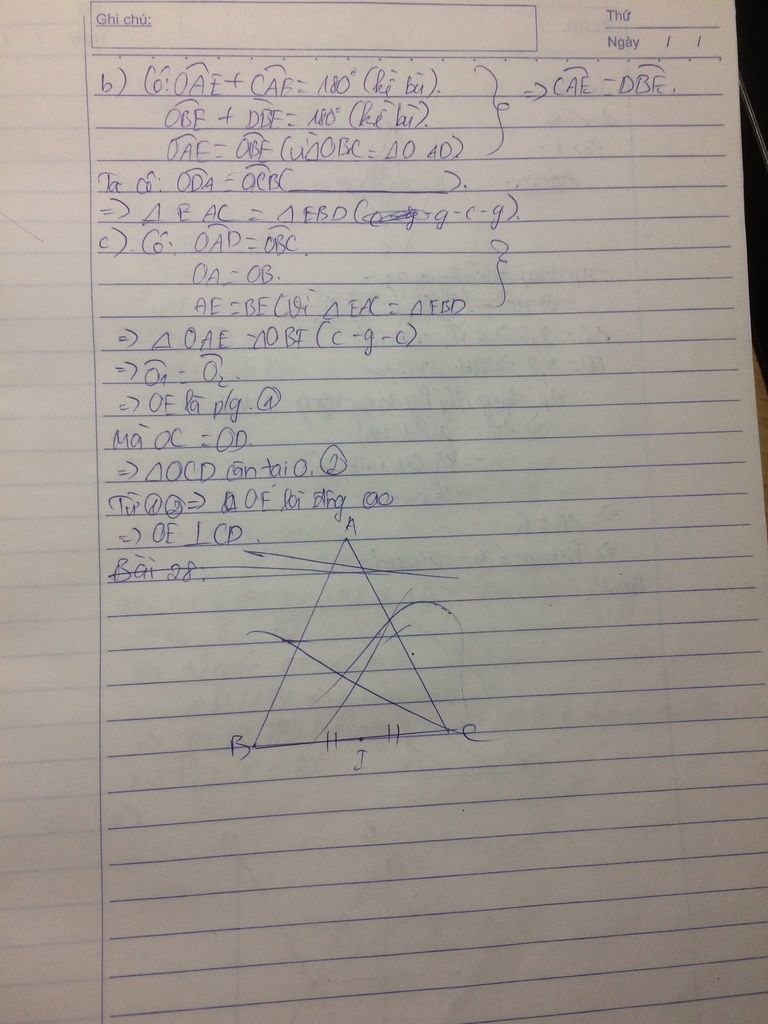 Ghi chú:
Thứ
Ngày / /
b) Có: OAE + CAE = 180° (kề bù).
OBE + DBE = 180° (kề bù).
OAE = OBE (vì ΔOBC = ΔOAD)
=> CAE = DBE.
Ta có: ODA = OCB ( ).
=> Δ EAC = Δ EBD ( g-c-g).
c). Có: OAD = OBC.
OA = OB.
AE = BE (vì Δ EAC = Δ EBD
=> Δ OAE = ΔOBE (c-g-c).
=> O1 = O2.
=> OE là p/g. ①
Mà OC = OD.
=> ΔOCD cân tại O. ②
Từ ① ② => OE là đường cao
=> OE ⊥ CD.
Bài 28:
A
B
I
C